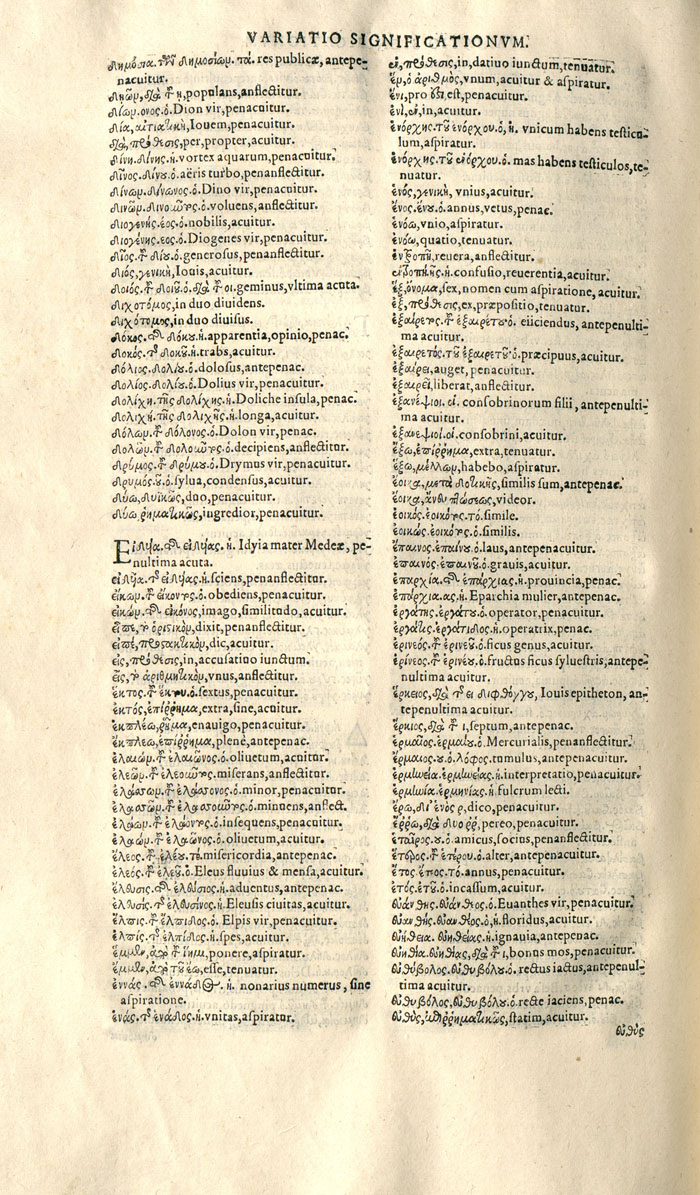 VARIATIO SIGNIFICATIONVM.
δημόσια. τῶν δημοσίων. τά. res publicæ, antepe-
nacuitur.
δηῶν, διὰ τοῦ η, populans, anflectitur.
δίων. ονος. ὁ. Dion vir, penacuitur.
δία, αἰτιατικὴ, Iouem, penacuitur.
διὰ, πρόθεσις, per, propter, acuitur.
δίνη. δίνης. ἡ. vortex aquarum, penacuitur.
δῖνος. δίνου. ὁ. aëris turbo, penanflectitur.
δίνων. δίνωνος. ὁ. Dino vir, penacuitur.
δινῶν. δινοῦντος. ὁ. voluens, anflectitur.
διογενής. έος. ὁ. nobilis, acuitur.
διογένης. εος. ὁ. Diogenes vir, penacuitur.
δῖος. τοῦ δίου. ὁ. generosus, penanflectitur.
διός, γενικὴ, Iouis, acuitur.
δοιός. τοῦ δοιοῦ. ὁ. διὰ τοῦ οι. geminus, vltima acuta.
διχοτόμος, in duo diuidens.
διχότομος, in duo diuisus.
δόκος. τοῦ δόκου. ἡ. apparentia, opinio, penac.
δοκός. τῆς δοκοῦ. ἡ. trabs, acuitur.
δόλιος. δολίου. ὁ. dolosus, antepenac.
δολίος. δολίου. ὁ. Dolius vir, penacuitur.
δολίχη. τῆς δολίχης. ἡ. Doliche insula, penac.
δολιχή. τῆς δολιχῆς. ἡ. longa, acuitur.
δόλων. τοῦ δόλονος. ὁ. Dolon vir, penac.
δολῶν. τοῦ δολοῦντος. ὁ. decipiens, anflectitur.
δρύμος. τοῦ δρύμου. ὁ. Drymus vir, penacuitur.
δρυμός. οῦ. ὁ. sylua, condensus, acuitur.
δύω, δυϊκῶς, duo, penacuitur.
δύω ῥηματικῶς, ingredior, penacuitur.
Εἰδύια. τῆς εἰδύιας. ἡ. Idyia mater Medeæ, pe-
nultima acuta.
εἰδυῖα. τῆς εἰδυίας. ἡ. sciens, penanflectitur.
εἴκων. τοῦ εἴκοντος. ὁ. obediens, penacuitur.
εἰκών. τῆς εἰκόνος, imago, similitudo, acuitur.
εἶπε, τὸ ὁριστικὸν, dixit, penanflectitur.
εἰπέ, προστακτικὸν, dic, acuitur.
εἰς, πρόθεσις, in, accusatiuo iunctum.
εἷς, τὸ ἀριθμητικὸν, vnus, anflectitur.
ἕκτος. τοῦ ἕκτου. ὁ. sextus, penacuitur.
ἐκτός, ἐπίρρημα, extra, sine, acuitur.
ἐκπλέω, ῥῆμα, enauigo, penacuitur.
ἔκπλεω, ἐπίρρημα, plenè, antepenac.
ἐλαιών. τοῦ ἐλαιῶνος. ὁ. oliuetum, acuitur.
ἐλεῶν. τοῦ ἐλεοῦντος. miserans, anflectitur.
ἐλάσσων. τοῦ ἐλάσσονος. ὁ. minor, penacuitur.
ἐλασσῶν. τοῦ ἐλασσοῦντος. ὁ. minuens, anflect.
ἐλάων. τοῦ ἐλάοντος. ὁ. insequens, penacuitur.
ἐλαών. τοῦ ἐλαῶνος. ὁ. oliuetum, acuitur.
ἔλεος. τοῦ ἐλέου. τό. misericordia, antepenac.
ἐλεός. τοῦ ἐλεοῦ. ὁ. Eleus fluuius & mensa, acuitur.
ἔλθυσις. τῆς ἐλθύσιος. ἡ. aduentus, antepenac.
ἐλθυσίς. τῆς ἐλθυσίνος. ἡ. Eleusis ciuitas, acuitur.
ἔλπις. τοῦ ἔλπιδος. ὁ. Elpis vir, penacuitur.
ἐλπίς. τῆς ἐλπίδος. ἡ. spes, acuitur.
ἕμεν, ἀπὸ τοῦ ἵημι, ponere, aspiratur.
ἔμμεν, ἀπὸ τοῦ ἔω, esse, tenuatur.
ἐννάς. τῆς ἐννάδος. ἡ. nonarius numerus, sine
aspiratione.
ἑνάς. τῆς ἑνάδος. ἡ. vnitas, aspiratur.
ἐν, πρόθεσις, in, datiuo iunctum, tenuatur.
ἕν, ὁ ἀριθμὸς, vnum, acuitur & aspiratur.
ἔνι, pro ἐστι, est, penacuitur.
ἐνὶ, ἐν, in, acuitur.
ἑνόρχης. τοῦ ἑνόρχου. ὁ, ἡ. vnicum habens testicu-
lum, aspiratur.
ἐνόρχης. τοῦ ἐνόρχου. ὁ. mas habens testiculos, te-
nuatur.
ἑνός, γενικὴ, vnius, acuitur.
ἕνος. ἕνου. ὁ. annus, vetus, penac.
ἑνόω, vnio, aspiratur.
ἐνόω, quatio, tenuatur.
ἐντροπῇ, reuera, anflectitur.
ἐντροπή. ῆς. ἡ. confusio, reuerentia, acuitur.
ἕξ, ὄνομα, sex, nomen cum aspiratione, acuitur.
ἐξ, πρόθεσις, ex, præpositio, tenuatur.
ἐξαίρετος. τοῦ ἐξαιρέτου. ὁ. eiiciendus, antepenulti-
ma acuitur.
ἐξαιρετός. τοῦ ἐξαιρετοῦ. ὁ. præcipuus, acuitur.
ἐξαίρει, auget, penacuitur.
ἐξαιρεῖ, liberat, anflectitur.
ἐξανέψιοι. οἱ. consobrinorum filii, antepenulti-
ma acuitur.
ἐξανεψιοί. οἱ. consobrini, acuitur.
ἔξω, ἐπίρρημα, extra, tenuatur.
ἕξω, μέλλων, habebo, aspiratur.
ἔοικα, μετὰ δοτικῆς, similis sum, antepenac.
ἔοικα, ἄνευ πτώσεως, videor.
ἐοικός. ἐοικότος. τό. simile.
ἐοικώς. ἐοικότος. ὁ. similis.
ἔπαινος. ἐπαίνου. ὁ. laus, antepenacuitur.
ἐπαινός. ἐπαινοῦ. ὁ. grauis, acuitur.
ἐπαρχία. τῆς ἐπαρχίας. ἡ. prouincia, penac.
ἐπάρχια. ας. ἡ. Eparchia mulier, antepenac.
ἐργάτης. ἐργάτου. ὁ. operator, penacuitur.
ἐργάτις. ἐργάτιδος. ἡ. operatrix, penac.
ἐρινεός. τοῦ ἐρινεοῦ. ὁ. ficus genus, acuitur.
ἐρίνεος. τοῦ ἐρινέου. ὁ. fructus ficus syluestris, antepe-
nultima acuitur.
ἕρκειος, διὰ τοῦ ει διφθόγγου, Iouis epitheton, an-
tepenultima acuitur.
ἕρκιος, διὰ τοῦ ι, septum, antepenac.
ἑρμαῖος. ἑρμαίου. ὁ. Mercurialis, penanflectitur.
ἕρμαιος. ου. ὁ. λόφος. tumulus, antepenacuitur.
ἑρμηνεία. ἑρμηνείας. ἡ. interpretatio, penacuitur.
ἑρμηνία. ἑρμηνίας. ἡ. fulcrum lecti.
ἔρω, δι' ἑνὸς ρ, dico, penacuitur.
ἔρρω, διὰ δύο ρρ, pereo, penacuitur.
ἑταῖρος. ου. ὁ. amicus, socius, penanflectitur.
ἕτερος. τοῦ ἑτέρου. ὁ. alter, antepenacuitur.
ἔτος. έπος. τό. annus, penacuitur.
ἐτός. ἐτοῦ. ὁ. incassum, acuitur.
εὐάνθης. εὐάνθεος. ὁ. Euanthes vir, penacuitur.
εὐανθής. εὐανθέος. ὁ, ἡ. floridus, acuitur.
εὐήθεια. εὐηθείας. ἡ. ignauia, antepenac.
εὐηθία. εὐηθίας, διὰ τοῦ ι, bonus mos, penacuitur.
εὐθύβολος. εὐθυβόλου. ὁ. rectus iactus, antepenul-
tima acuitur.
εὐθυβόλος, εὐθυβόλου. ὁ. recte iaciens, penac.
εὐθὺς, ἐπιρρηματικῶς, statim, acuitur.
εὐθὺς